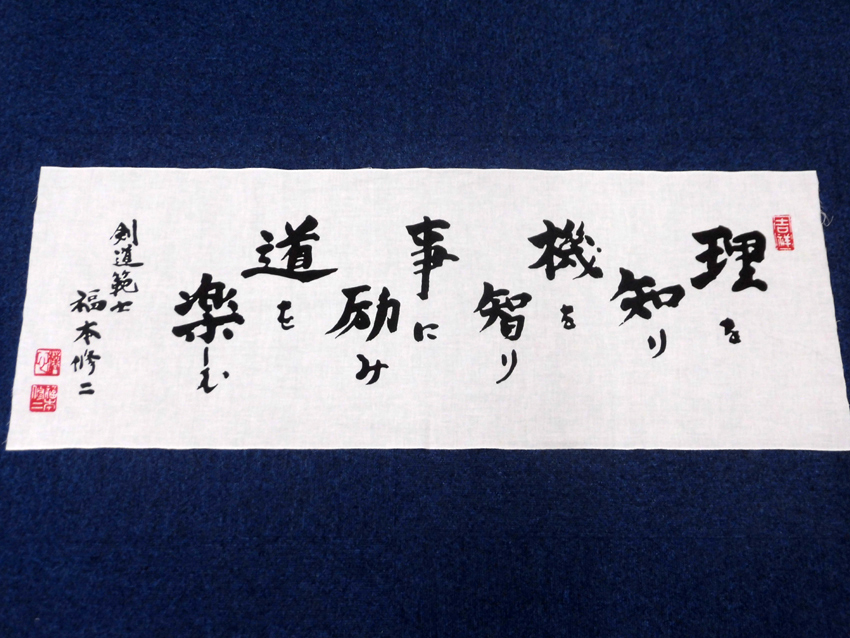 吉祥
理を
知り
機を
智り
事に
励み
道を
楽しむ
剣道範士
福本修二
福本
修二